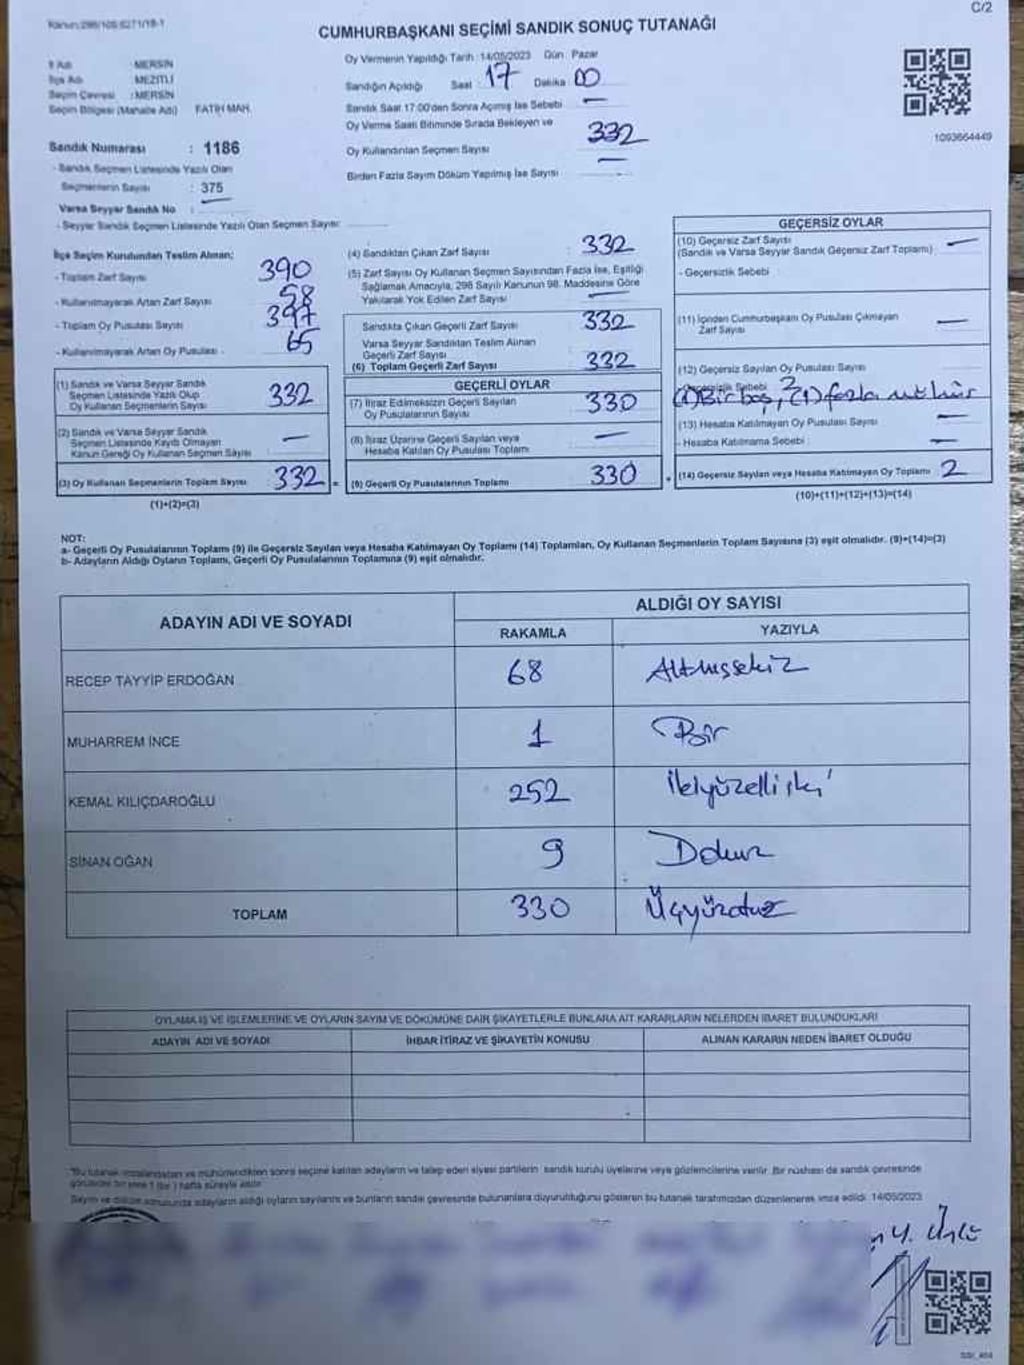 Kanun:298/109.6271/18-1
C/2
CUMHURBAŞKANI SEÇİMİ SANDIK SONUÇ TUTANAĞI
İl Adı : MERSİN
İlçe Adı : MEZİTLİ
Seçim Çevresi : MERSİN
Seçim Bölgesi (Mahalle Adı) FATİH MAH.
Sandık Numarası : 1186
- Sandık Seçmen Listesinde Yazılı Olan
Seçmenlerin Sayısı : 375
Varsa Seyyar Sandık No :
- Seyyar Sandık Seçmen Listesinde Yazılı Olan Seçmen Sayısı:
Oy Vermenin Yapıldığı Tarih :14/05/2023 Gün: Pazar
Sandığın Açıldığı Saat 17 Dakika 00
Sandık Saat 17:00'den Sonra Açılmış İse Sebebi —
Oy Verme Saati Bitiminde Sırada Bekleyen ve
Oy Kullandırılan Seçmen Sayısı 332
Birden Fazla Sayım Döküm Yapılmış İse Sayısı —
1093664449
İlçe Seçim Kurulundan Teslim Alınan;
- Toplam Zarf Sayısı 390
- Kullanılmayarak Artan Zarf Sayısı 58
- Toplam Oy Pusulası Sayısı 397
- Kullanılmayarak Artan Oy Pusulası : 65
(1) Sandık ve Varsa Seyyar Sandık
Seçmen Listesinde Yazılı Olup
Oy Kullanan Seçmenlerin Sayısı : 332
(2) Sandık ve Varsa Seyyar Sandık
Seçmen Listesinde Kaydı Olmayan
Kanun Gereği Oy Kullanan Seçmen Sayısı : —
(3) Oy Kullanan Seçmenlerin Toplam Sayısı : 332 =
(1)+(2)=(3)
(4) Sandıktan Çıkan Zarf Sayısı : 332
(5) Zarf Sayısı Oy Kullanan Seçmen Sayısından Fazla İse, Eşitliği
Sağlamak Amacıyla, 298 Sayılı Kanunun 98. Maddesine Göre
Yakılarak Yok Edilen Zarf Sayısı : —
Sandıkta Çıkan Geçerli Zarf Sayısı : 332
Varsa Seyyar Sandıktan Teslim Alınan
Geçerli Zarf Sayısı
(6) Toplam Geçerli Zarf Sayısı : 332
GEÇERLİ OYLAR
(7) İtiraz Edilmeksizin Geçerli Sayılan
Oy Pusulalarının Sayısı : 330
(8) İtiraz Üzerine Geçerli Sayılan veya
Hesaba Katılan Oy Pusulası Toplamı : —
(9) Geçerli Oy Pusulalarının Toplamı : 330 +
GEÇERSİZ OYLAR
(10) Geçersiz Zarf Sayısı
(Sandık ve Varsa Seyyar Sandık Geçersiz Zarf Toplamı) —
- Geçersizlik Sebebi
(11) İçinden Cumhurbaşkanı Oy Pusulası Çıkmayan
Zarf Sayısı —
(12) Geçersiz Sayılan Oy Pusulası Sayısı : 2
- Geçersizlik Sebebi (1) Bir boş, (1) fazla mühür
(13) Hesaba Katılmayan Oy Pusulası Sayısı —
- Hesaba Katılmama Sebebi : —
(14) Geçersiz Sayılan veya Hesaba Katılmayan Oy Toplamı : 2
(10)+(11)+(12)+(13)=(14)
NOT:
a- Geçerli Oy Pusulalarının Toplamı (9) ile Geçersiz Sayılan veya Hesaba Katılmayan Oy Toplamı (14) Toplamları, Oy Kullanan Seçmenlerin Toplam Sayısına (3) eşit olmalıdır. (9)+(14)=(3)
b- Adayların Aldığı Oyların Toplamı, Geçerli Oy Pusulalarının Toplamına (9) eşit olmalıdır.
ADAYIN ADI VE SOYADI ALDIĞI OY SAYISI
RAKAMLA YAZIYLA
RECEP TAYYİP ERDOĞAN 68 Altmışsekiz
MUHARREM İNCE 1 Bir
KEMAL KILIÇDAROĞLU 252 İkiyüzelliiki
SİNAN OĞAN 9 Dokuz
TOPLAM 330 Üçyüzotuz
OYLAMA İŞ VE İŞLEMLERİNE VE OYLARIN SAYIM VE DÖKÜMÜNE DAİR ŞİKAYETLERLE BUNLARA AİT KARARLARIN NELERDEN İBARET BULUNDUKLARI
ADAYIN ADI VE SOYADI İHBAR İTİRAZ VE ŞİKAYETİN KONUSU ALINAN KARARIN NEDEN İBARET OLDUĞU
*Bu tutanak imzalandıktan ve mühürlendikten sonra seçime katılan adayların ve talep eden siyasi partilerin sandık kurulu üyelerine veya gözlemcilerine verilir. Bir nüshası da sandık çevresinde
görülebilir bir yere 1 (bir) hafta süreyle asılır.
Sayım ve döküm sonucunda adayların aldığı oyların sayılarını ve bunların sandık çevresinde bulunanlara duyurulduğunu gösteren bu tutanak tarafımızdan düzenlenerek imza edildi. 14/05/2023
Y. Ünlü